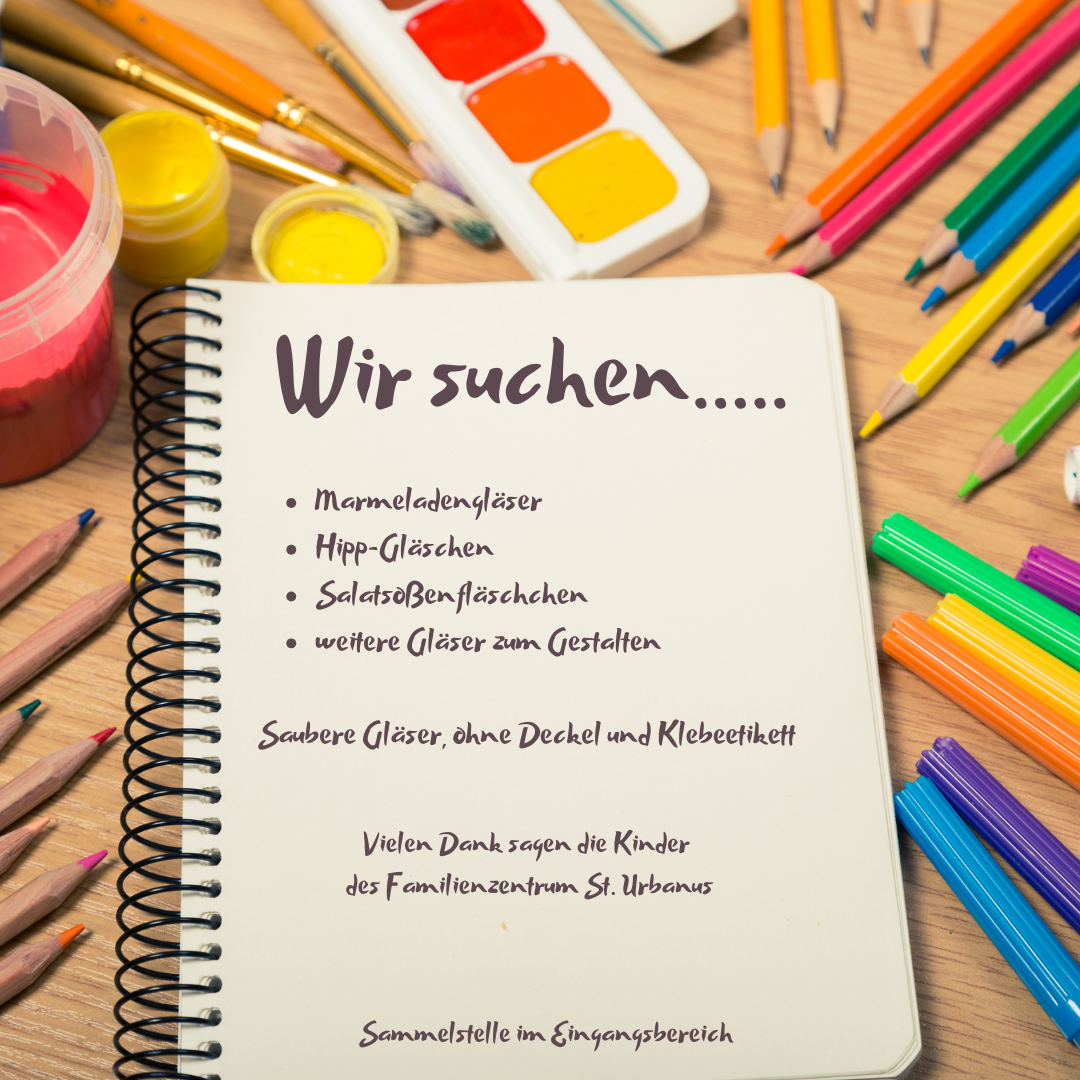 Wir suchen.....
• Marmeladengläser
• Hipp-Gläschen
• Salatsoßenfläschchen
• weitere Gläser zum Gestalten
Saubere Gläser, ohne Deckel und Klebeetikett
Vielen Dank sagen die Kinder
des Familienzentrum St. Urbanus
Sammelstelle im Eingangsbereich